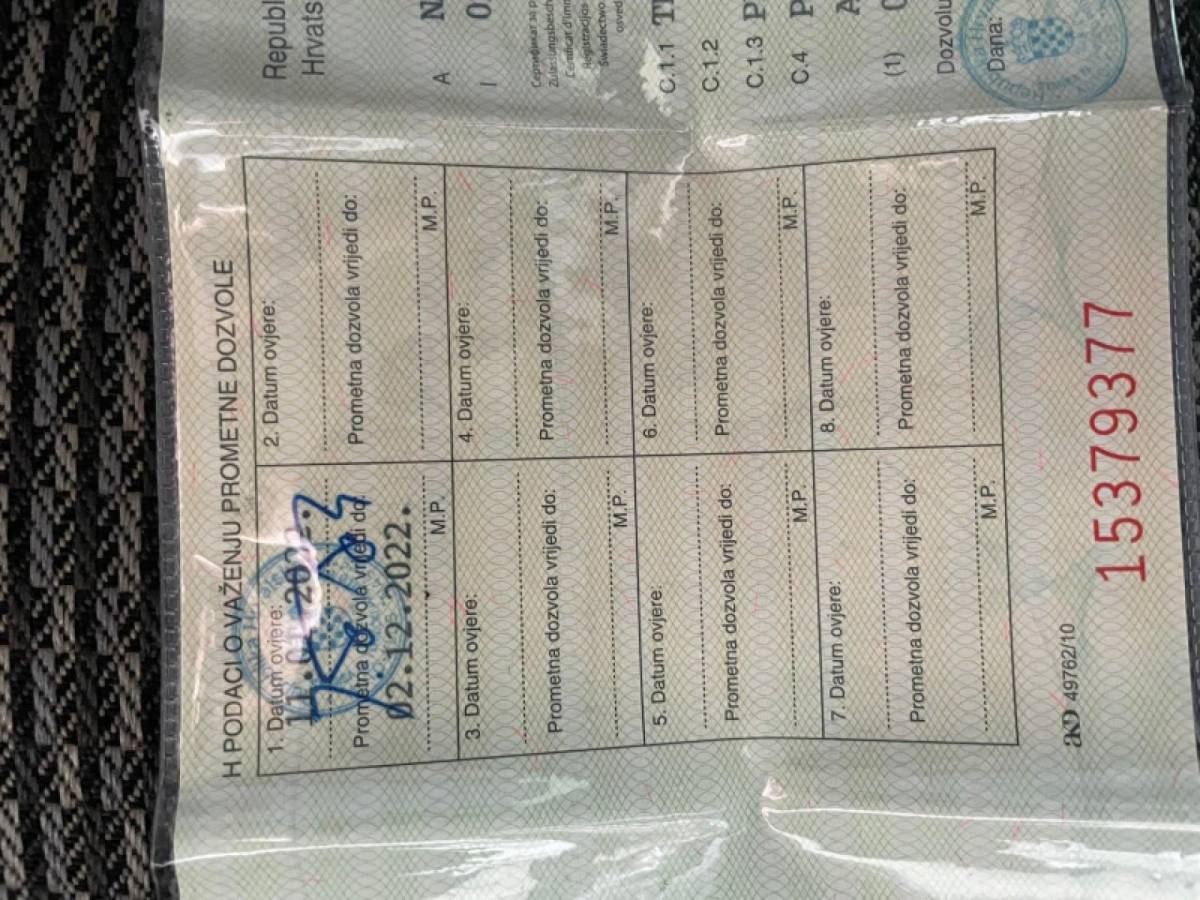 H PODACI O VAŽENJU PROMETNE DOZVOLE
1. Datum ovjere:
Prometna dozvola vrijedi do:
02.12.2022.
M.P.
2. Datum ovjere:
Prometna dozvola vrijedi do:
M.P.
3. Datum ovjere:
Prometna dozvola vrijedi do:
M.P.
4. Datum ovjere:
Prometna dozvola vrijedi do:
M.P.
5. Datum ovjere:
Prometna dozvola vrijedi do:
M.P.
6. Datum ovjere:
Prometna dozvola vrijedi do:
M.P.
7. Datum ovjere:
Prometna dozvola vrijedi do:
M.P.
8. Datum ovjere:
Prometna dozvola vrijedi do:
M.P.
AKD 49762/10
15379377
A N
I 0
C.1.1
C.1.2
C.1.3 P
C.4 P
A
(1)
Dana: